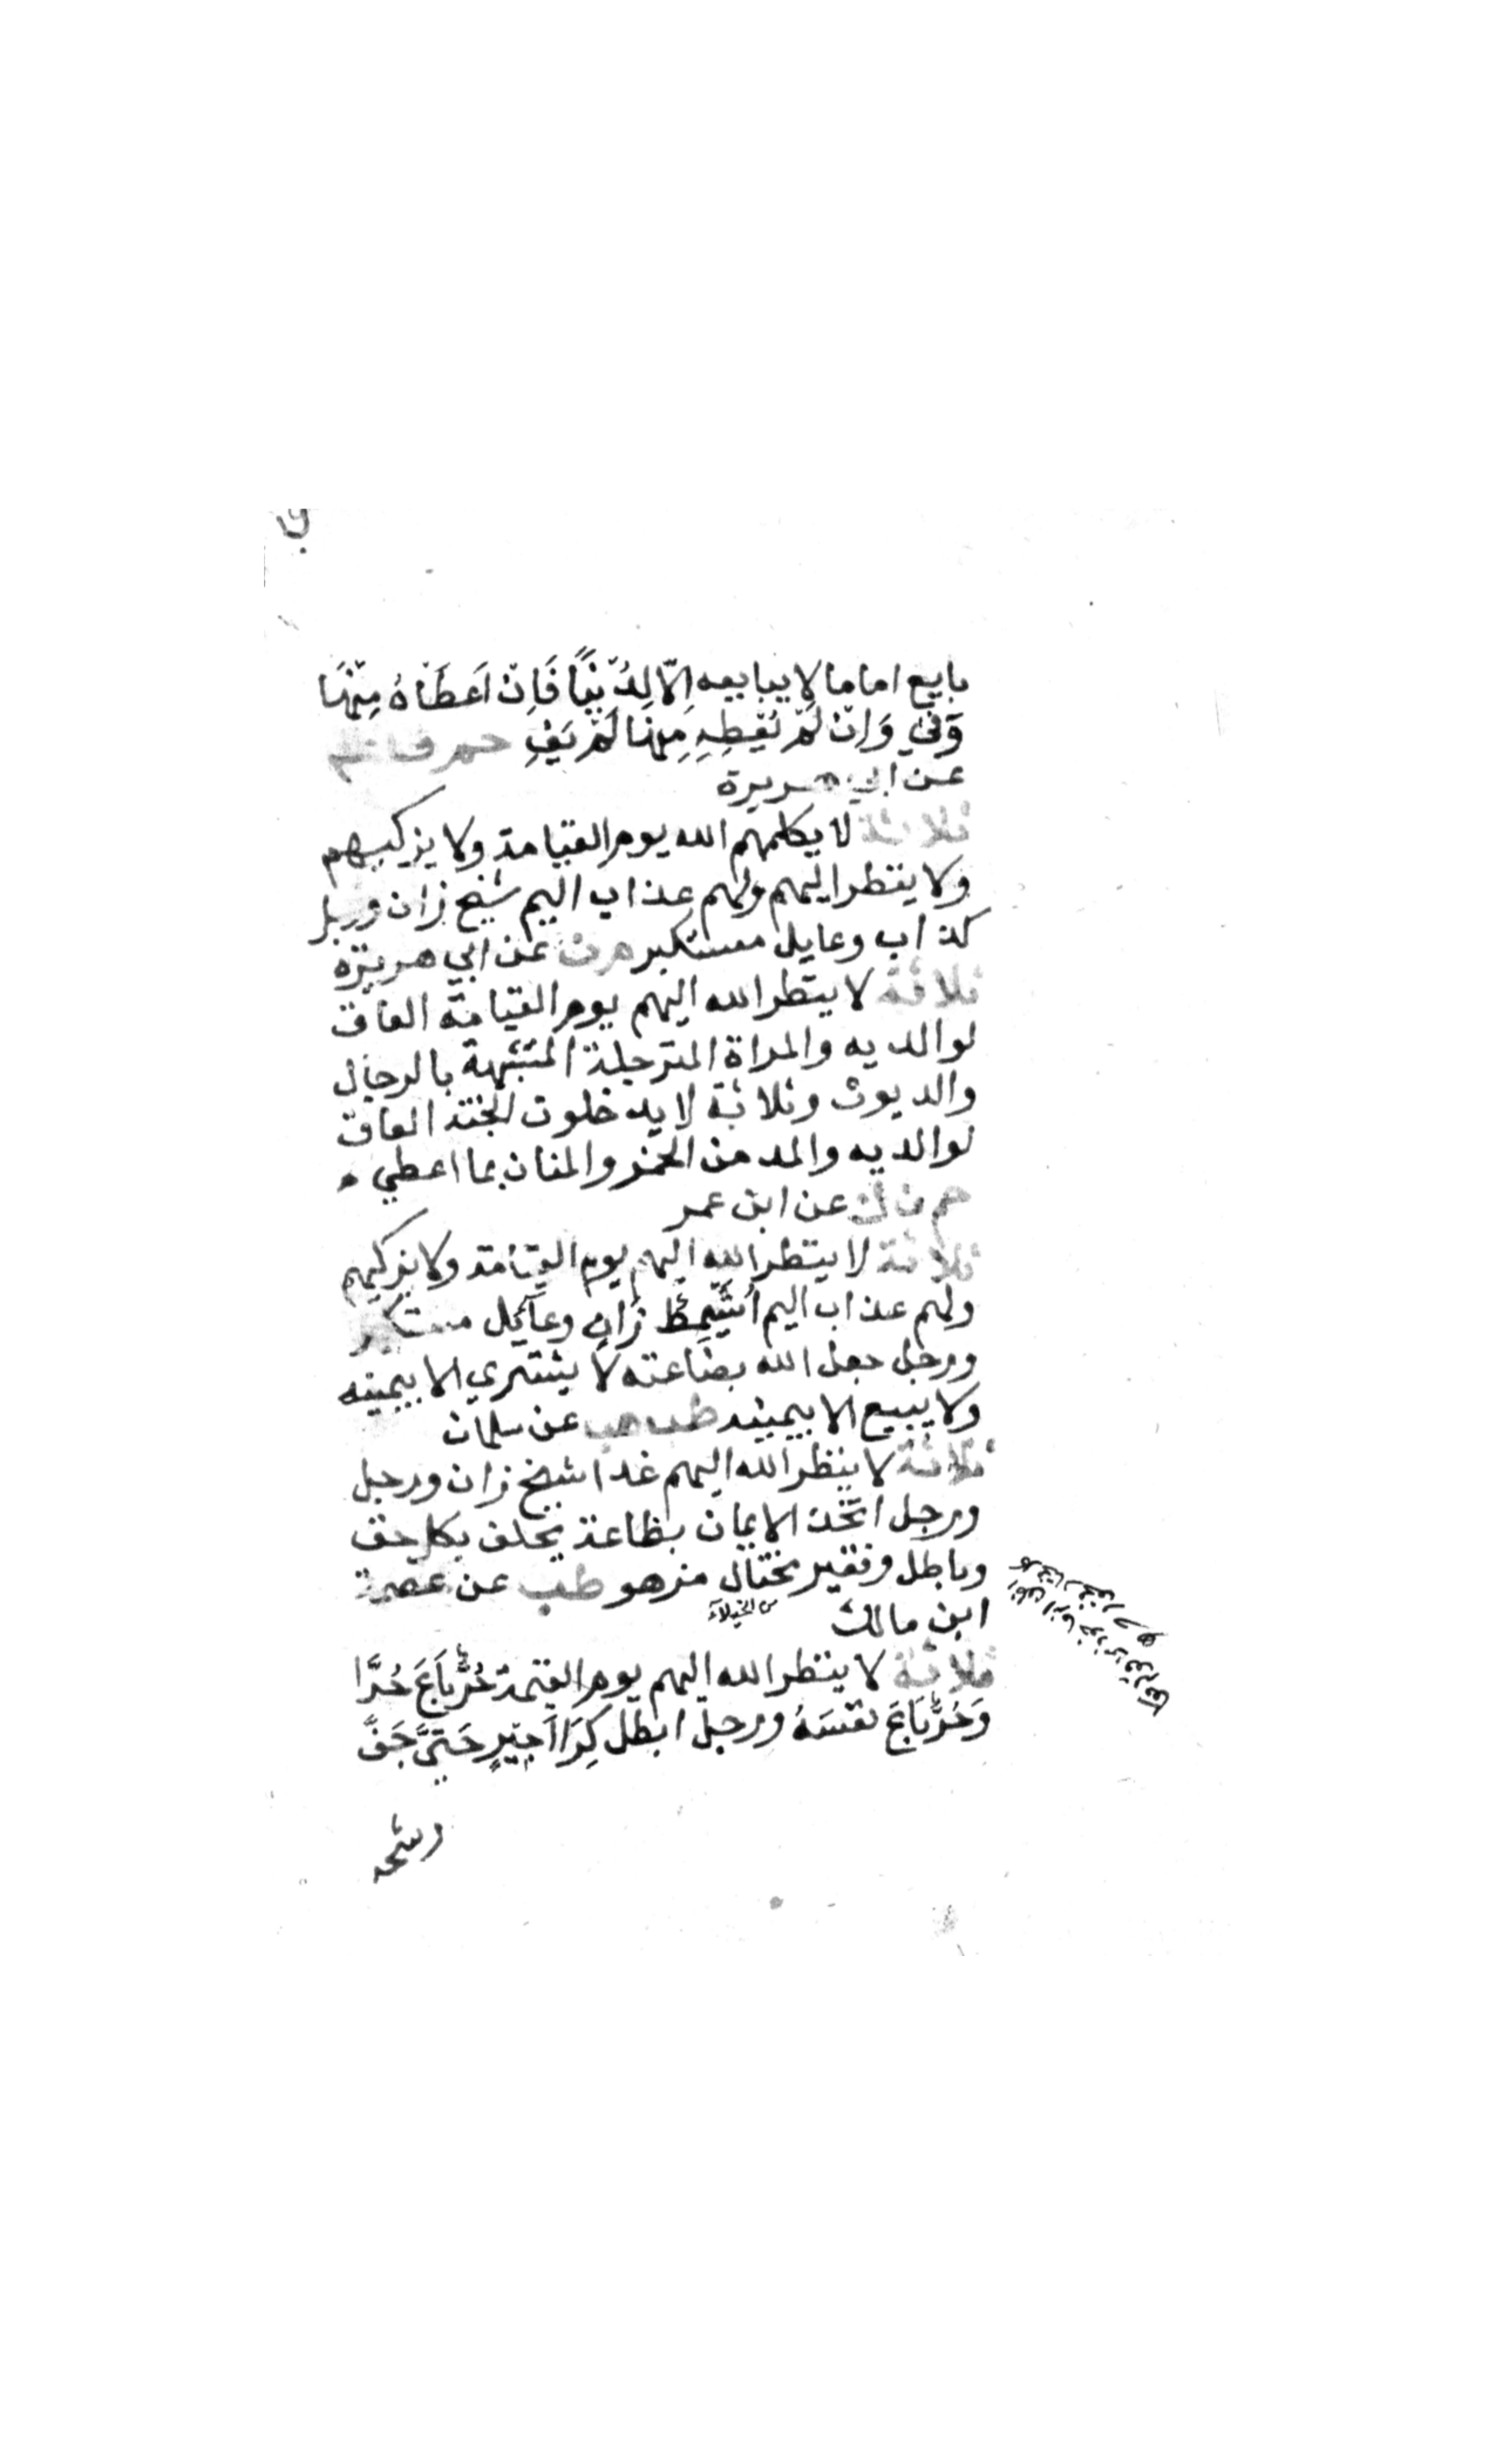 بايع اماما لا يبايعه اِلّا لِدُنْيًا فَاِنْ اَعْطَاهُ مِنْهَا
وَفَي وَاِنْ لَمْ يُعْطِهِ مِنْهَا لَمْ يَفِ حم ق
عن ابي هريرة
ثلاثة لا يكلمهم الله يوم القيامة ولا يزكيهم
ولا ينظر اليهم ولهم عذاب اليم شيخ زان ورجل
كذاب وعايل مستكبر م ن عن ابي هريرة
ثلاثة لا ينظر الله اليهم يوم القيامة العاق
لوالديه والمراة المترجلة المتشبهة بالرجال
والديوث وثلاثة لا يدخلون الجنة العاق
لوالديه والمدمن الخمر والمنان بما اعطي
حم ن ك عن ابن عمر
ثلاثة لا ينظر الله اليهم يوم القيامة ولا يزكيهم
ولهم عذاب اليم اُشَيْمِطٌ زَانٍ وعآئل مستكبر
ورجل جعل الله بضاعته لا يشتري الا بيمينه
ولا يبيع الا بيمينه طب هب عن سلمان
ثلاثة لا ينظر الله اليهم غدا شيخ زان ورجل
ورجل اتخذ الايمان بظاعة يحلف بكل حق
وباطل وفقير مختال مزهو طب عن عصمة
ابن مالك
من الخيلآء
ثلاثة لا ينظر الله اليهم يوم القيمة حُرٌّ بَاعَ حُرًّا
وَحُرٌّ بَاعَ نفْسَهُ ورجل ابطل كِرَا اَجِيْرٍ حَتيَّ جَفَّ
رشحه